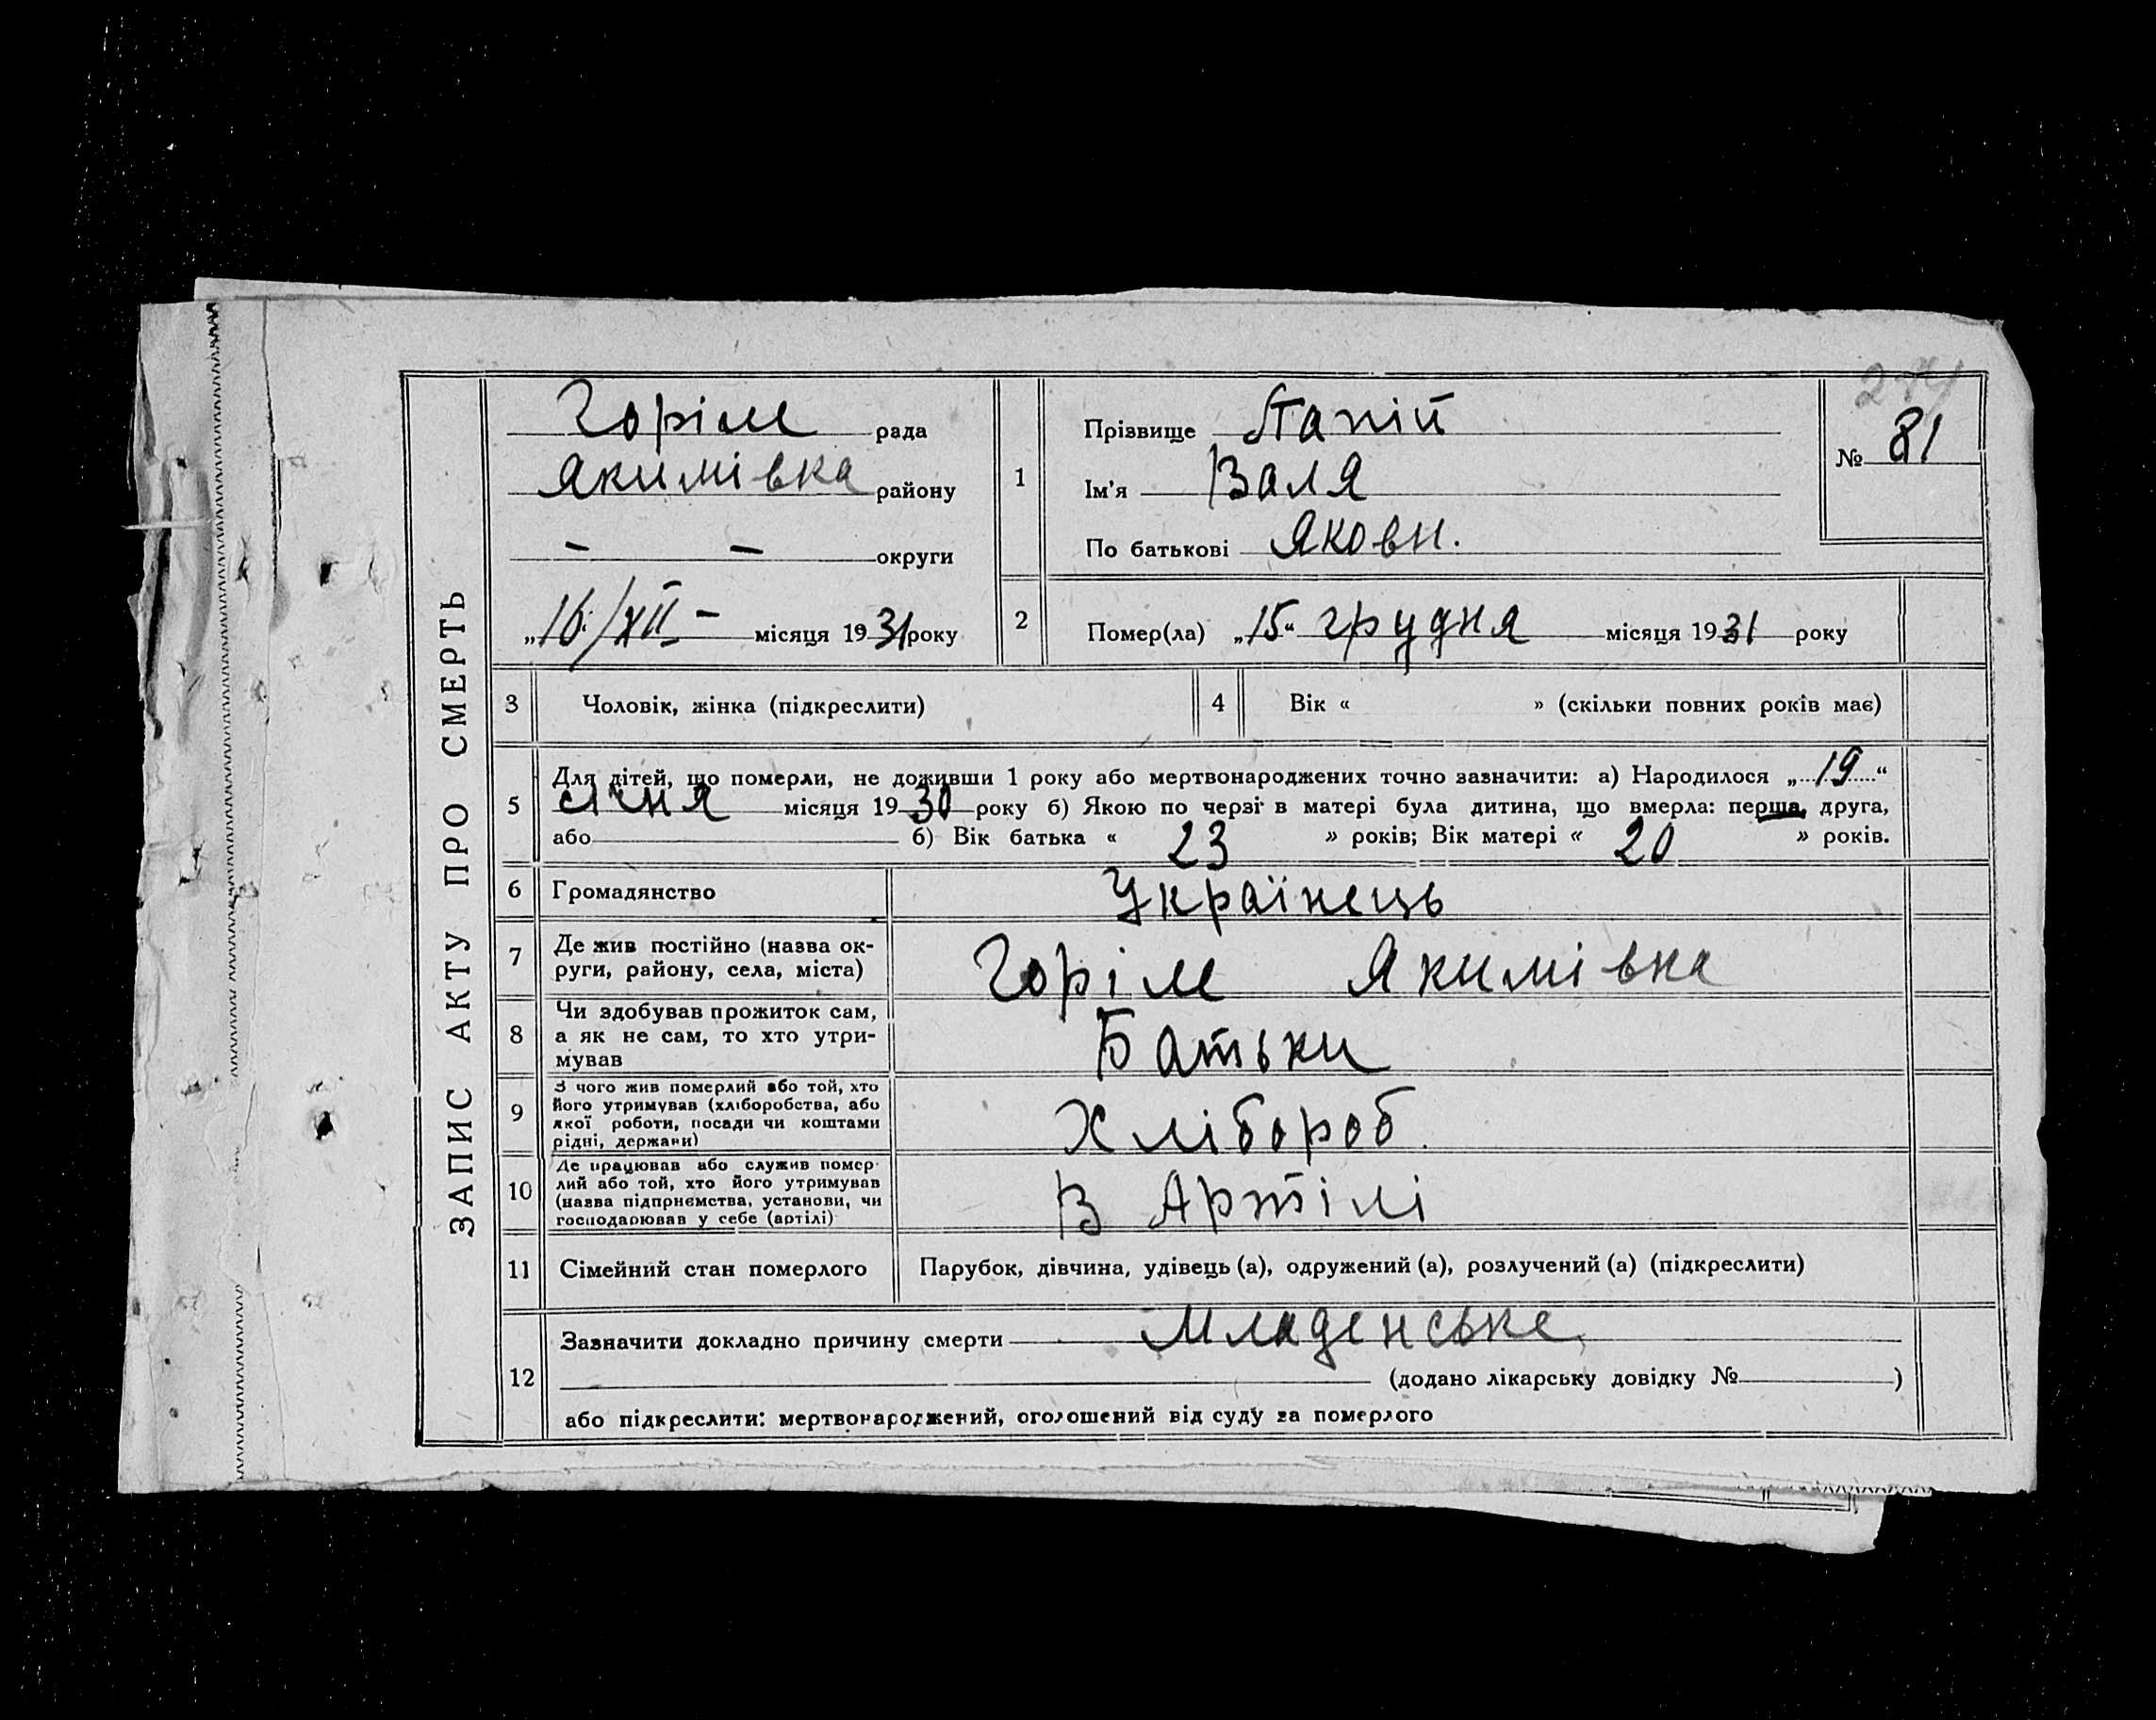 ЗАПИС АКТУ ПРО СМЕРТЬ
Горіле рада
Якимівка району
— — округи
„16./XII — місяця 1931 року
1
Прізвище Папій
Ім'я Валя
По батькові Яковн.
№ 81
2
Помер(ла) „15“ грудня місяця 1931 року
3 Чоловік, жінка (підкреслити)
4 Вік « » (скільки повних років має)
5 Для дітей, що померли, не доживши 1 року або мертвонароджених точно зазначити: а) Народилося „19“
січня місяця 1930 року б) Якою по черзі в матері була дитина, що вмерла: перша, друга,
або б) Вік батька « 23 » років; Вік матері « 20 » років.
6 Громадянство Українець
7 Де жив постійно (назва ок-
руги, району, села, міста) Горіле Якимівка
8 Чи здобував прожиток сам,
а як не сам, то хто утри-
мував Батьки
9 З чого жив померлий або той, хто
його утримував (хліборобства, або
якої роботи, посади чи коштами
рідні, держави) Хлібороб.
10 Де працював або служив помер-
лий або той, хто його утримував
(назва підприємства, установи, чи
господарював у себе (артілі) В Артілі
11 Сімейний стан померлого Парубок, дівчина, удівець (а), одружений (а), розлучений (а) (підкреслити)
12 Зазначити докладно причину смерти Младенське
(додано лікарську довідку № )
або підкреслити: мертвонароджений, оголошений від суду за померлого